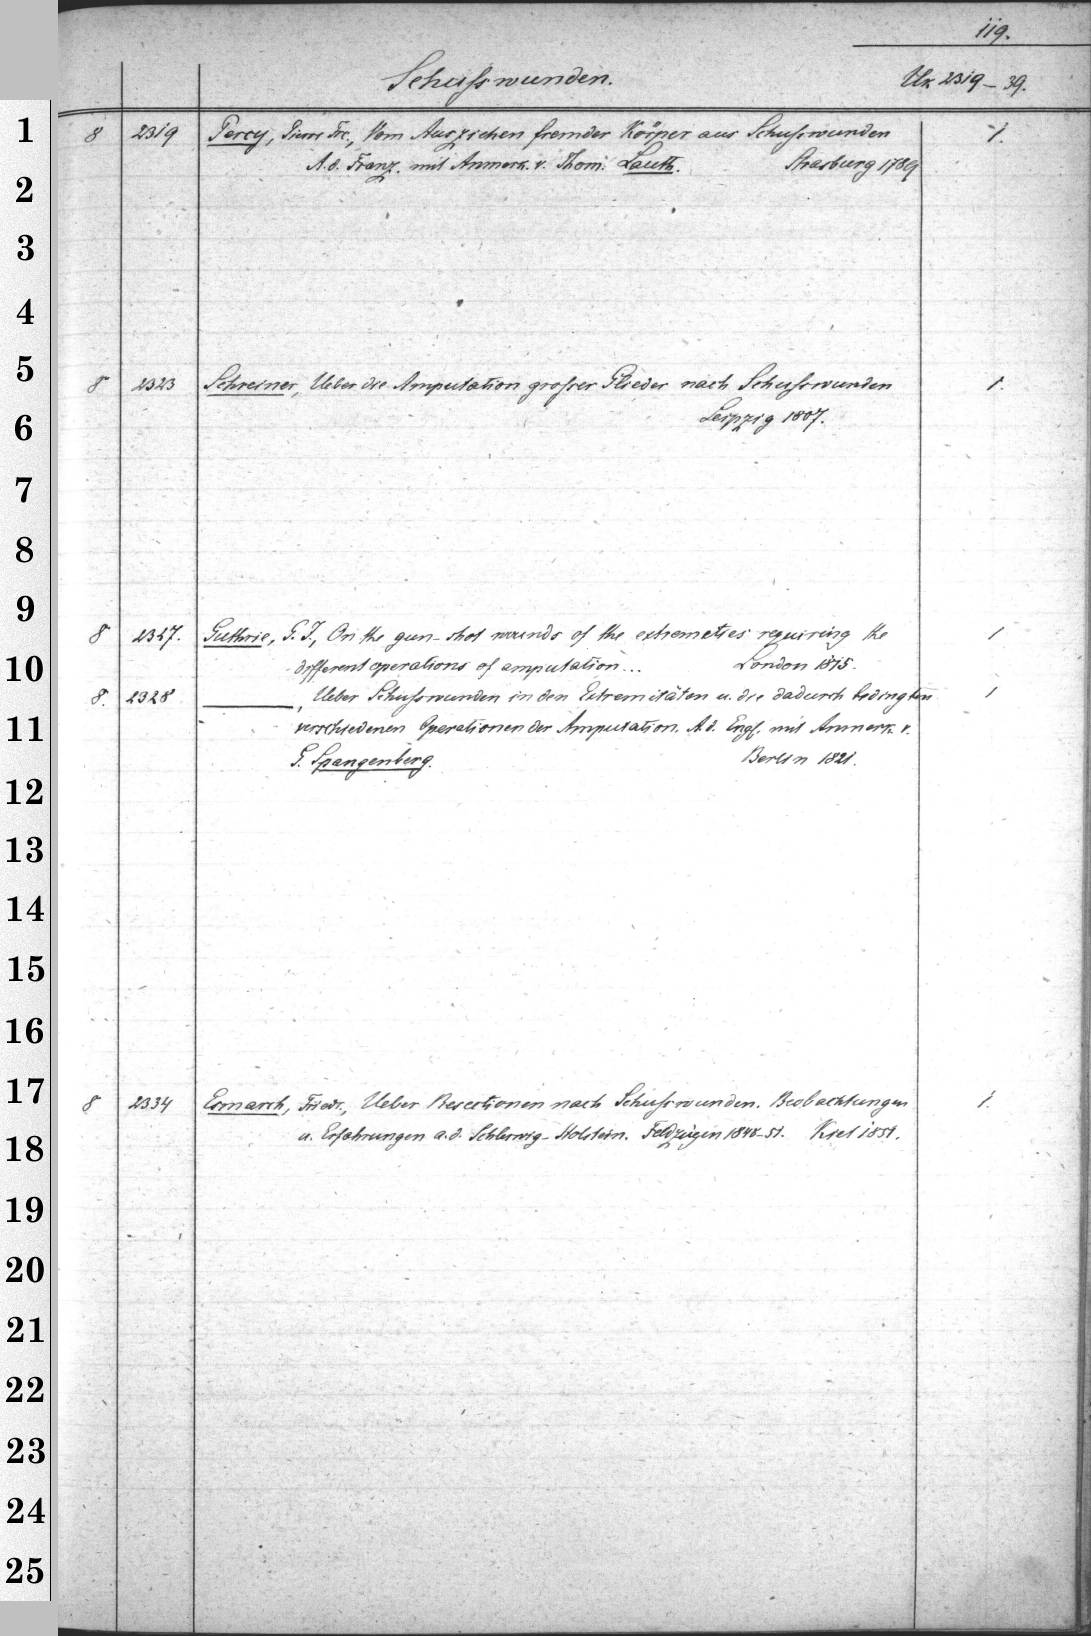 119.
Schusswunden. Uk 2319-39.
1
8 2319 Percy, Pierre Frc., Vom Ausziehen fremder Körper aus Schusswunden 1.
2
A. d. Franz. mit Anmerk. v. Thom. Lauth. Strasburg 1789
3
4
5
8 2323 Schreiner, Ueber die Amputation grosser Glieder nach Schusswunden 1.
6
Leipzig 1807.
7
8
9
8 2327. Guthrie, G. J., On the gun-shot wounds of the extremeties requiring the 1
10
different operations of amputation... London 1815.
8. 2328 ———, Ueber Schusswunden in den Extremitäten u. die dadurch bedingten 1
11
verschiedenen Operationen der Amputation. A. d. Engl. mit Anmerk. v.
G. Spangenberg. Berlin 1821.
12
13
14
15
16
17
8 2334 Esmarch, Friedr., Ueber Resectionen nach Schusswunden. Beobachtungen 1.
18
u. Erfahrungen a. d. Schleswig-Holstein. Feldzügen 1848-51. Kiel 1851.
19
20
21
22
23
24
25